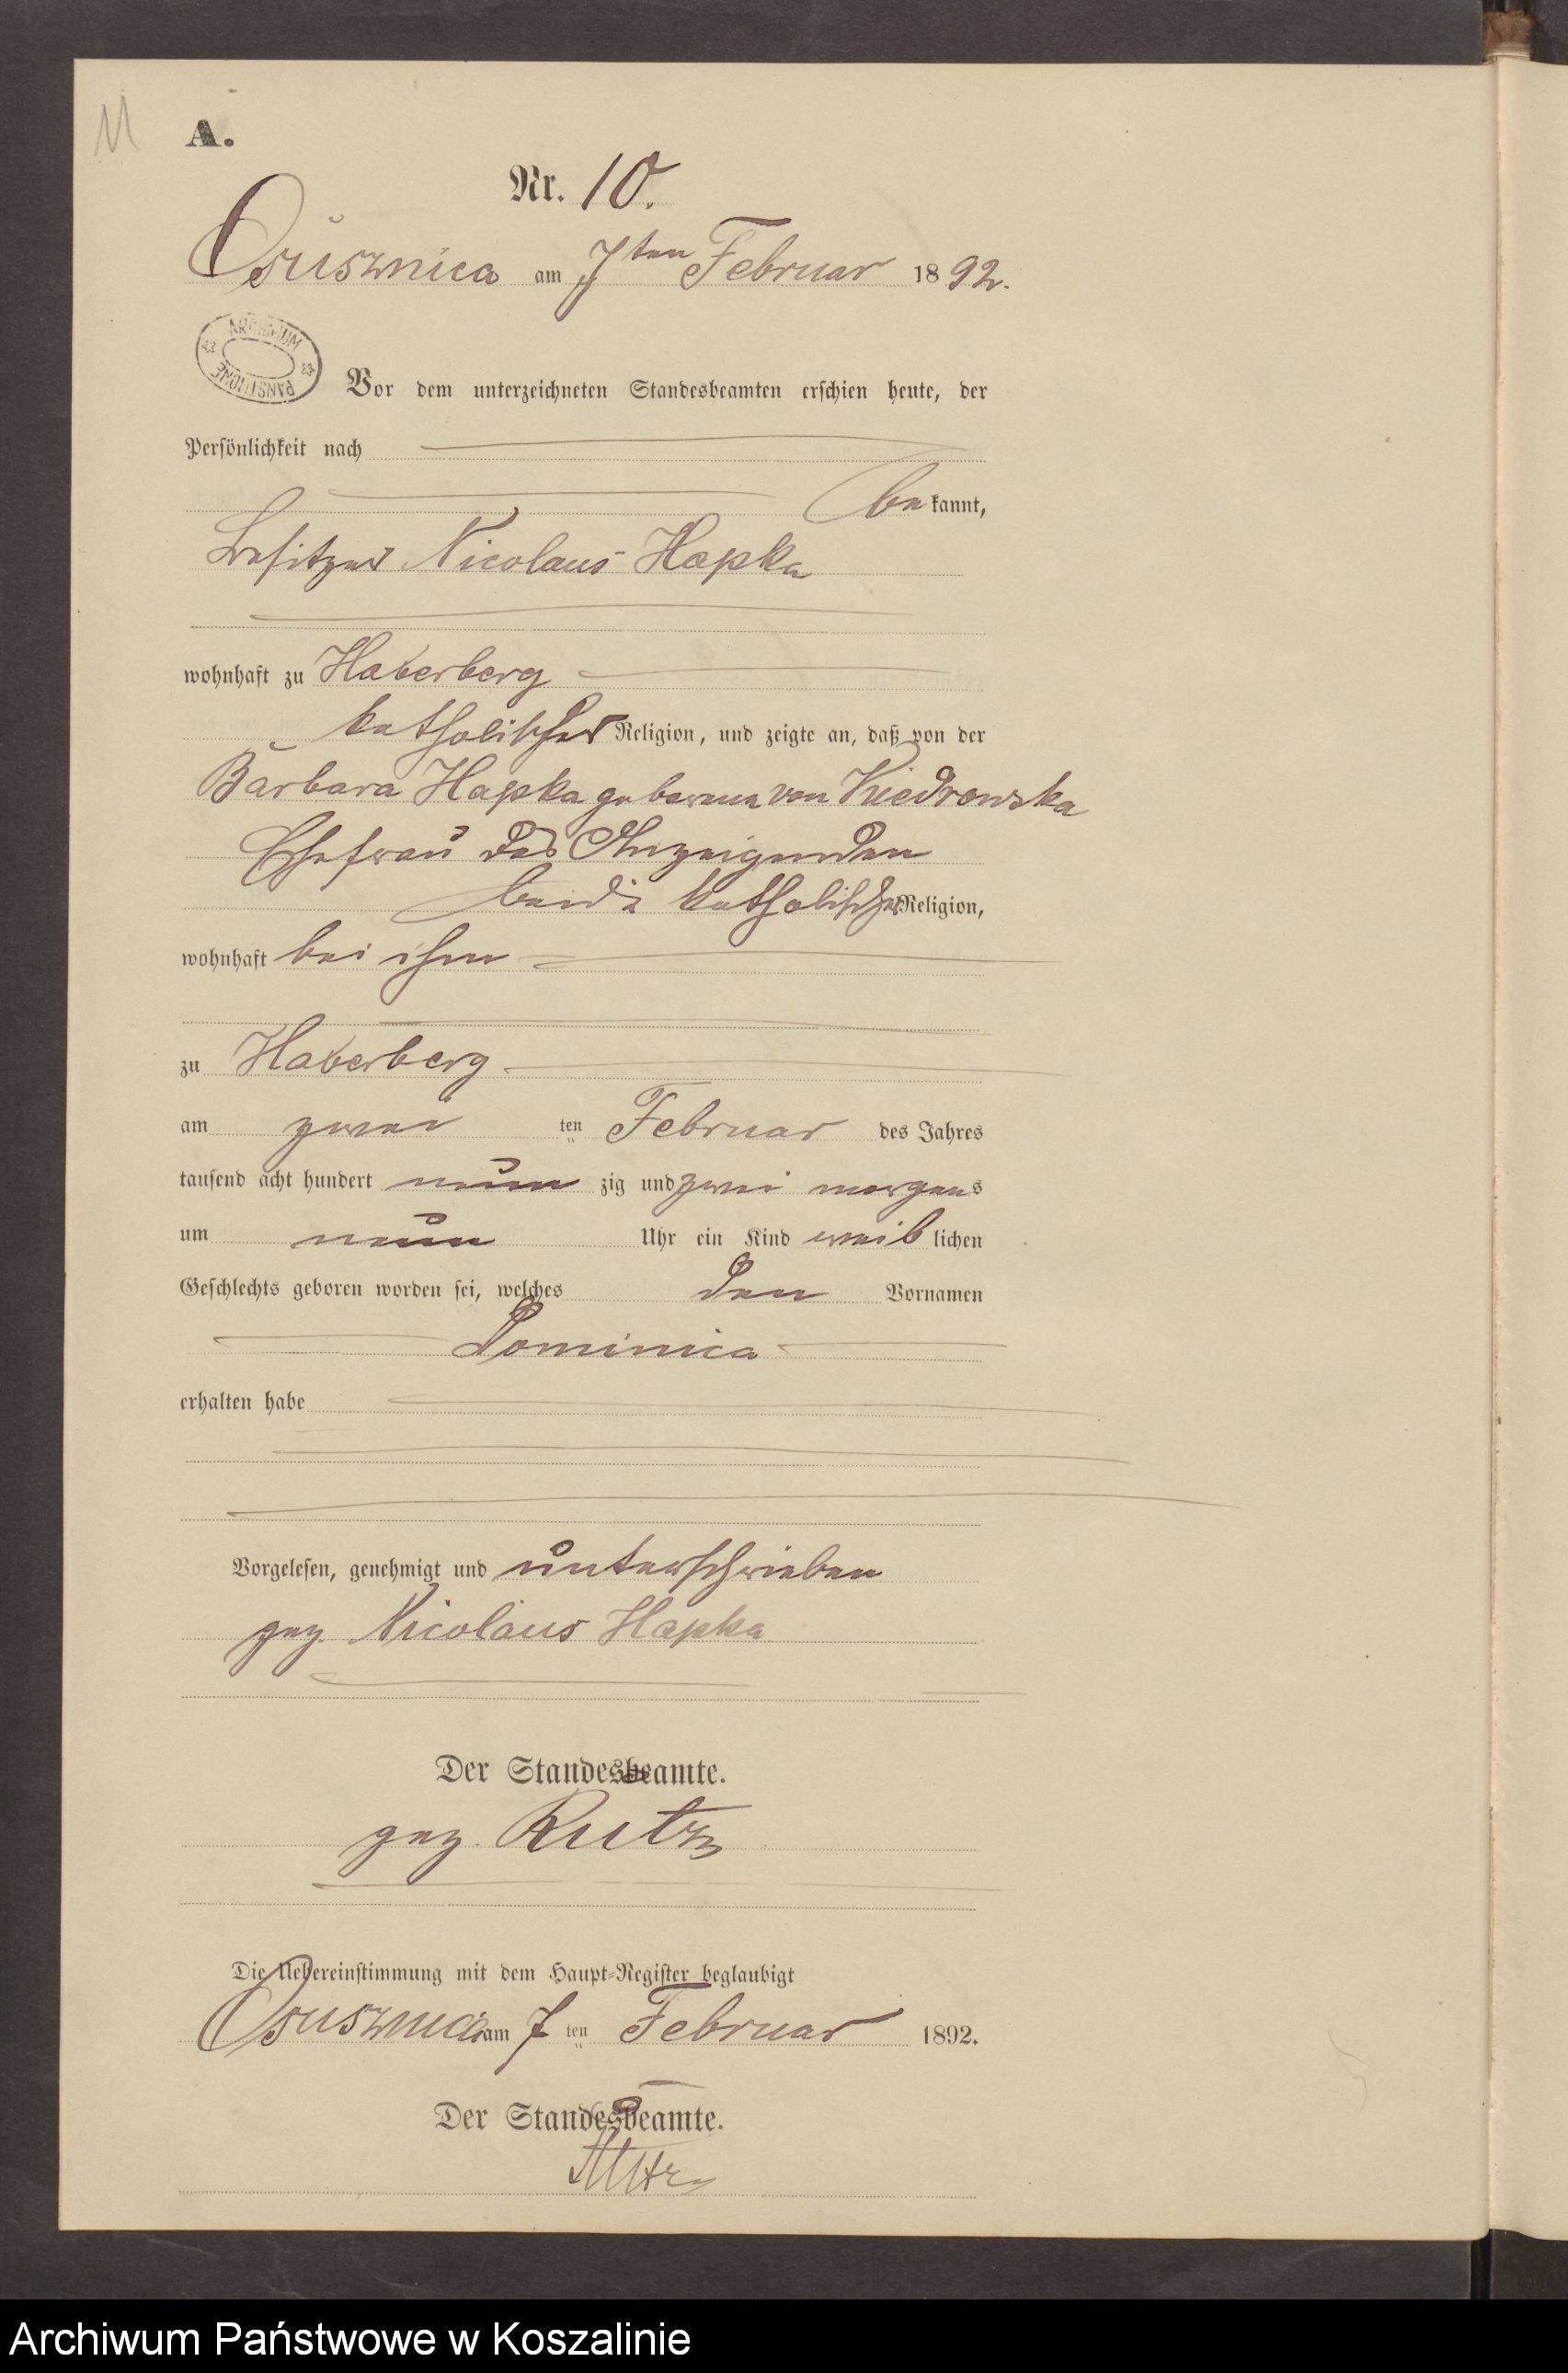 11
A.
Nr. 10.
Osusznica am 7ten Februar 1892.
ARCHIWUM PAŃSTWOWE
Vor dem unterzeichneten Standesbeamten erschien heute, der
Persönlichkeit nach
bekannt,
Besitzer Nicolaus Hapka
wohnhaft zu Haberberg
katholischer Religion, und zeigte an, daß von der
Barbara Hapka geborene von Kiedrowska
Ehefrau des Anzeigenden
beide katholischer Religion,
wohnhaft bei ihm
zu Haberberg
am zwei ten Februar des Jahres
tausend acht hundert neun zig und zwei morgens
um neun Uhr ein Kind weiblichen
Geschlechts geboren worden sei, welches den Vornamen
Dominica
erhalten habe
Vorgelesen, genehmigt und unterschrieben
gez. Nicolaus Hapka
Der Standesbeamte.
gez. Rutz
Die Uebereinstimmung mit dem Haupt-Register beglaubigt
Osusznica am 7 ten Februar 1892.
Der Standesbeamte.
Rutz
Archiwum Państwowe w Koszalinie